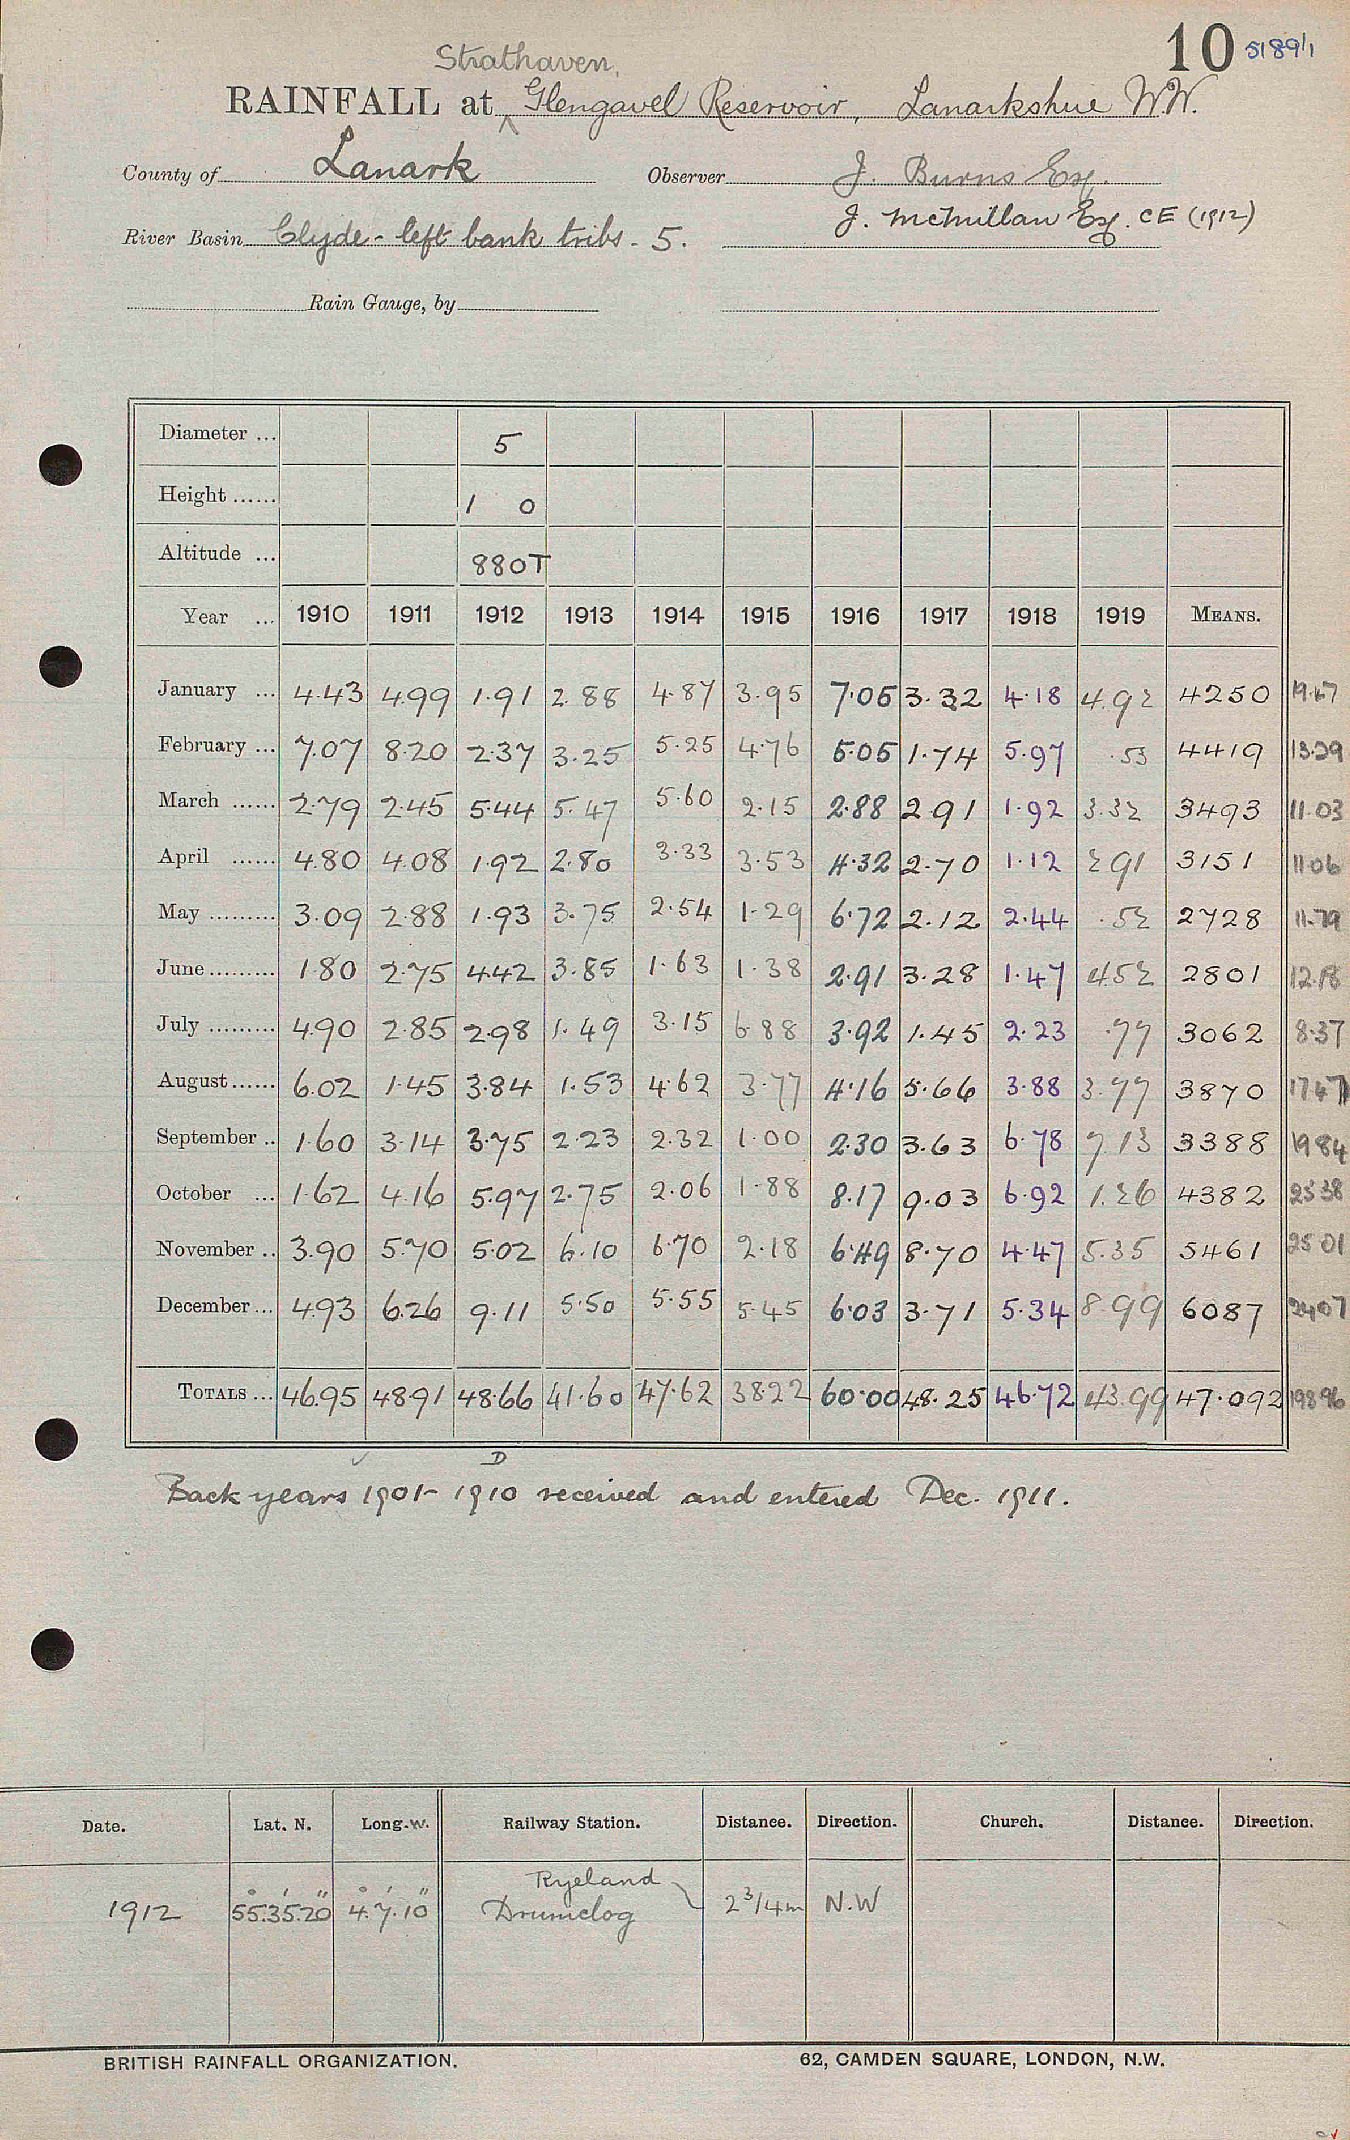 10 5189/1
Strathaven,
RAINFALL at Glengavel Reservoir, Lanarkshire W.W.
County of Lanark Observer J. Burns Esq.
J. McMillan Esq. CE (1912)
River Basin Clyde - left bank tribs - 5.
Rain Gauge, by
Diameter ... 5
Height ...... 1 0
Altitude ... 880T
Year ... 1910 1911 1912 1913 1914 1915 1916 1917 1918 1919 MEANS.
January ... 4.43 4.99 1.91 2.88 4.87 3.95 7.05 3.32 4.18 4.92 4250 19.47
February ... 7.07 8.20 2.37 3.25 5.25 4.76 5.05 1.74 5.97 .53 4419 13.29
March ...... 2.79 2.45 5.44 5.47 5.60 2.15 2.88 2.91 1.92 3.32 3493 11.03
April ...... 4.80 4.08 1.92 2.80 3.33 3.53 4.32 2.70 1.12 2.91 3151 11.06
May ......... 3.09 2.88 1.93 3.75 2.54 1.29 6.72 2.12 2.44 .52 2728 11.79
June ......... 1.80 2.75 4.42 3.85 1.63 1.38 2.91 3.28 1.47 4.52 2801 12.18
July ......... 4.90 2.85 2.98 1.49 3.15 6.88 3.92 1.45 2.23 .77 3062 8.37
August ...... 6.02 1.45 3.84 1.53 4.62 3.77 4.16 5.66 3.88 3.77 3870 17.47
September .. 1.60 3.14 3.75 2.23 2.32 1.00 2.30 3.63 6.78 7.13 3388 19.84
October ... 1.62 4.16 5.97 2.75 2.06 1.88 8.17 9.03 6.92 1.26 4382 25.38
November .. 3.90 5.70 5.02 6.10 6.70 2.18 6.49 8.70 4.47 5.35 5461 25.01
December ... 4.93 6.26 9.11 5.50 5.55 5.45 6.03 3.71 5.34 8.99 6087 24.07
TOTALS ... 46.95 48.91 48.66 41.60 47.62 38.22 60.00 48.25 46.72 43.99 47.092 198.96
D
Back years 1901-1910 received and entered Dec. 1911.
Date. Lat. N. Long. W. Railway Station. Distance. Direction. Church. Distance. Direction.
Ryeland
1912 55°.35'.20" 4°.7'.10" Drumclog 2 3/4 m N.W
BRITISH RAINFALL ORGANIZATION. 62, CAMDEN SQUARE, LONDON, N.W.